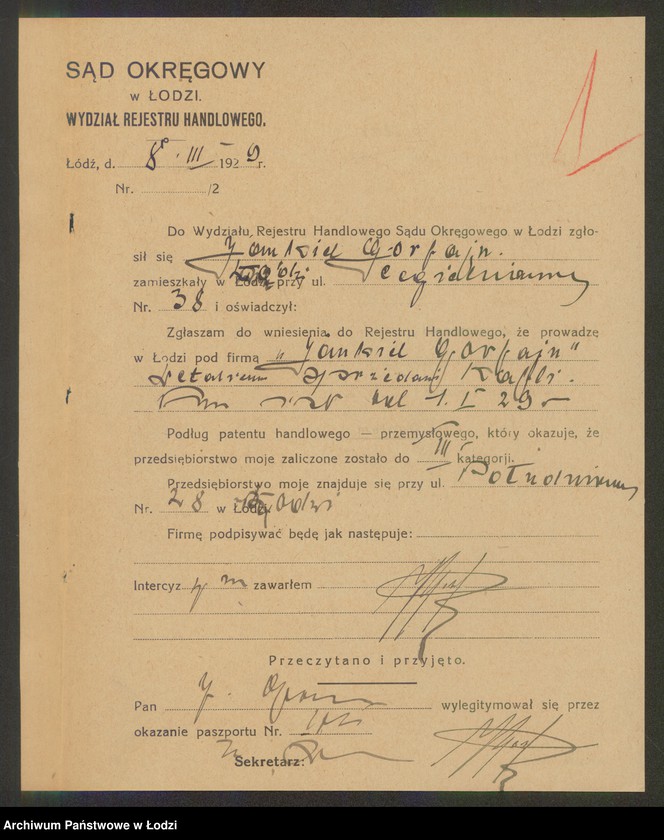 SĄD OKRĘGOWY
w ŁODZI.
WYDZIAŁ REJESTRU HANDLOWEGO.
Łódź, d. 8. III 1929 r.
Nr. /2
Do Wydziału Rejestru Handlowego Sądu Okręgowego w Łodzi zgło-
sił się Jankiel Gorfajn.
zamieszkały w Łodzi przy ul. Cegielnianej
Nr. 38 i oświadczył:
Zgłaszam do wniesienia do Rejestru Handlowego, że prowadzę
w Łodzi pod firmą „Jankiel Gorfajn"
sprzedaż kafli.
1. I 29
Podług patentu handlowego — przemysłowego, który okazuje, że
przedsiębiorstwo moje zaliczone zostało do III kategorji.
Przedsiębiorstwo moje znajduje się przy ul. Południowej
Nr. 28 w Łodzi
Firmę podpisywać będę jak następuje:
Intercyzy nie zawarłem
Przeczytano i przyjęto.
Pan J. wylegitymował się przez
okazanie paszportu Nr.
Sekretarz:
Archiwum Państwowe w Łodzi